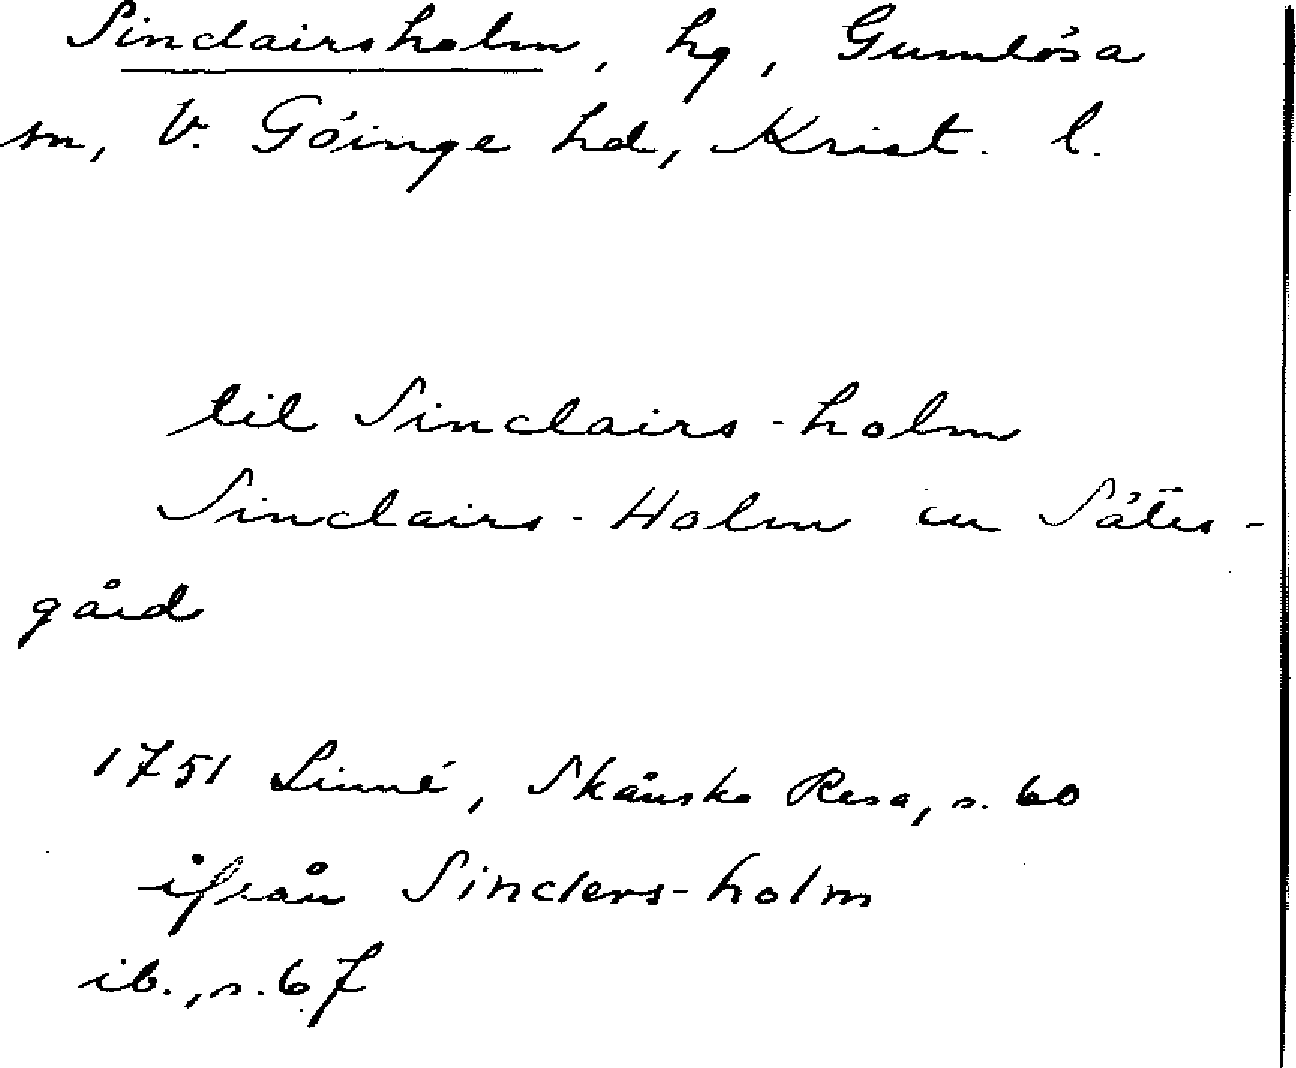 Sinclairsholm, hg, Gumlösa
sn, V. Göinge hd, Krist. l.
til Sinclairs-holm
Sinclairs-Holm en Säte-
gård
1751 Linné, Skånska Resa, s. 60
ifrån Sinclers-holm
ib., s. 67